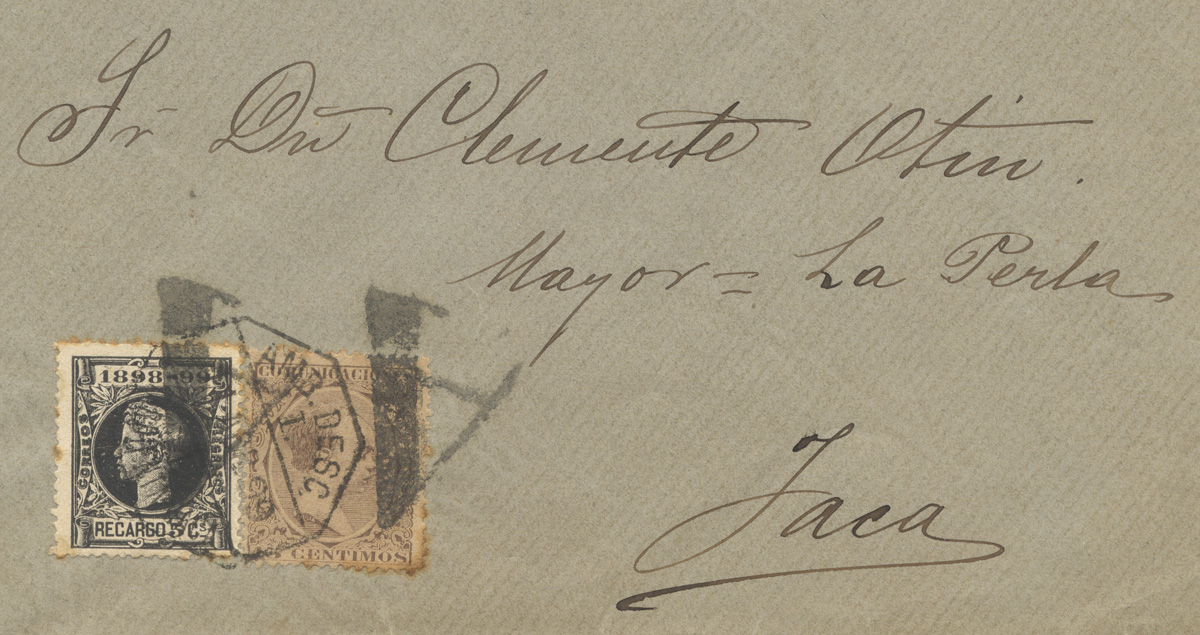 Sr Dn Clemente Otin.
Mayor = La Perla
Jaca
1898-99
CORREOS
RECARGO 5 Cs
COMUNICACIO
CENTIMOS
AMB. DESC.
1.